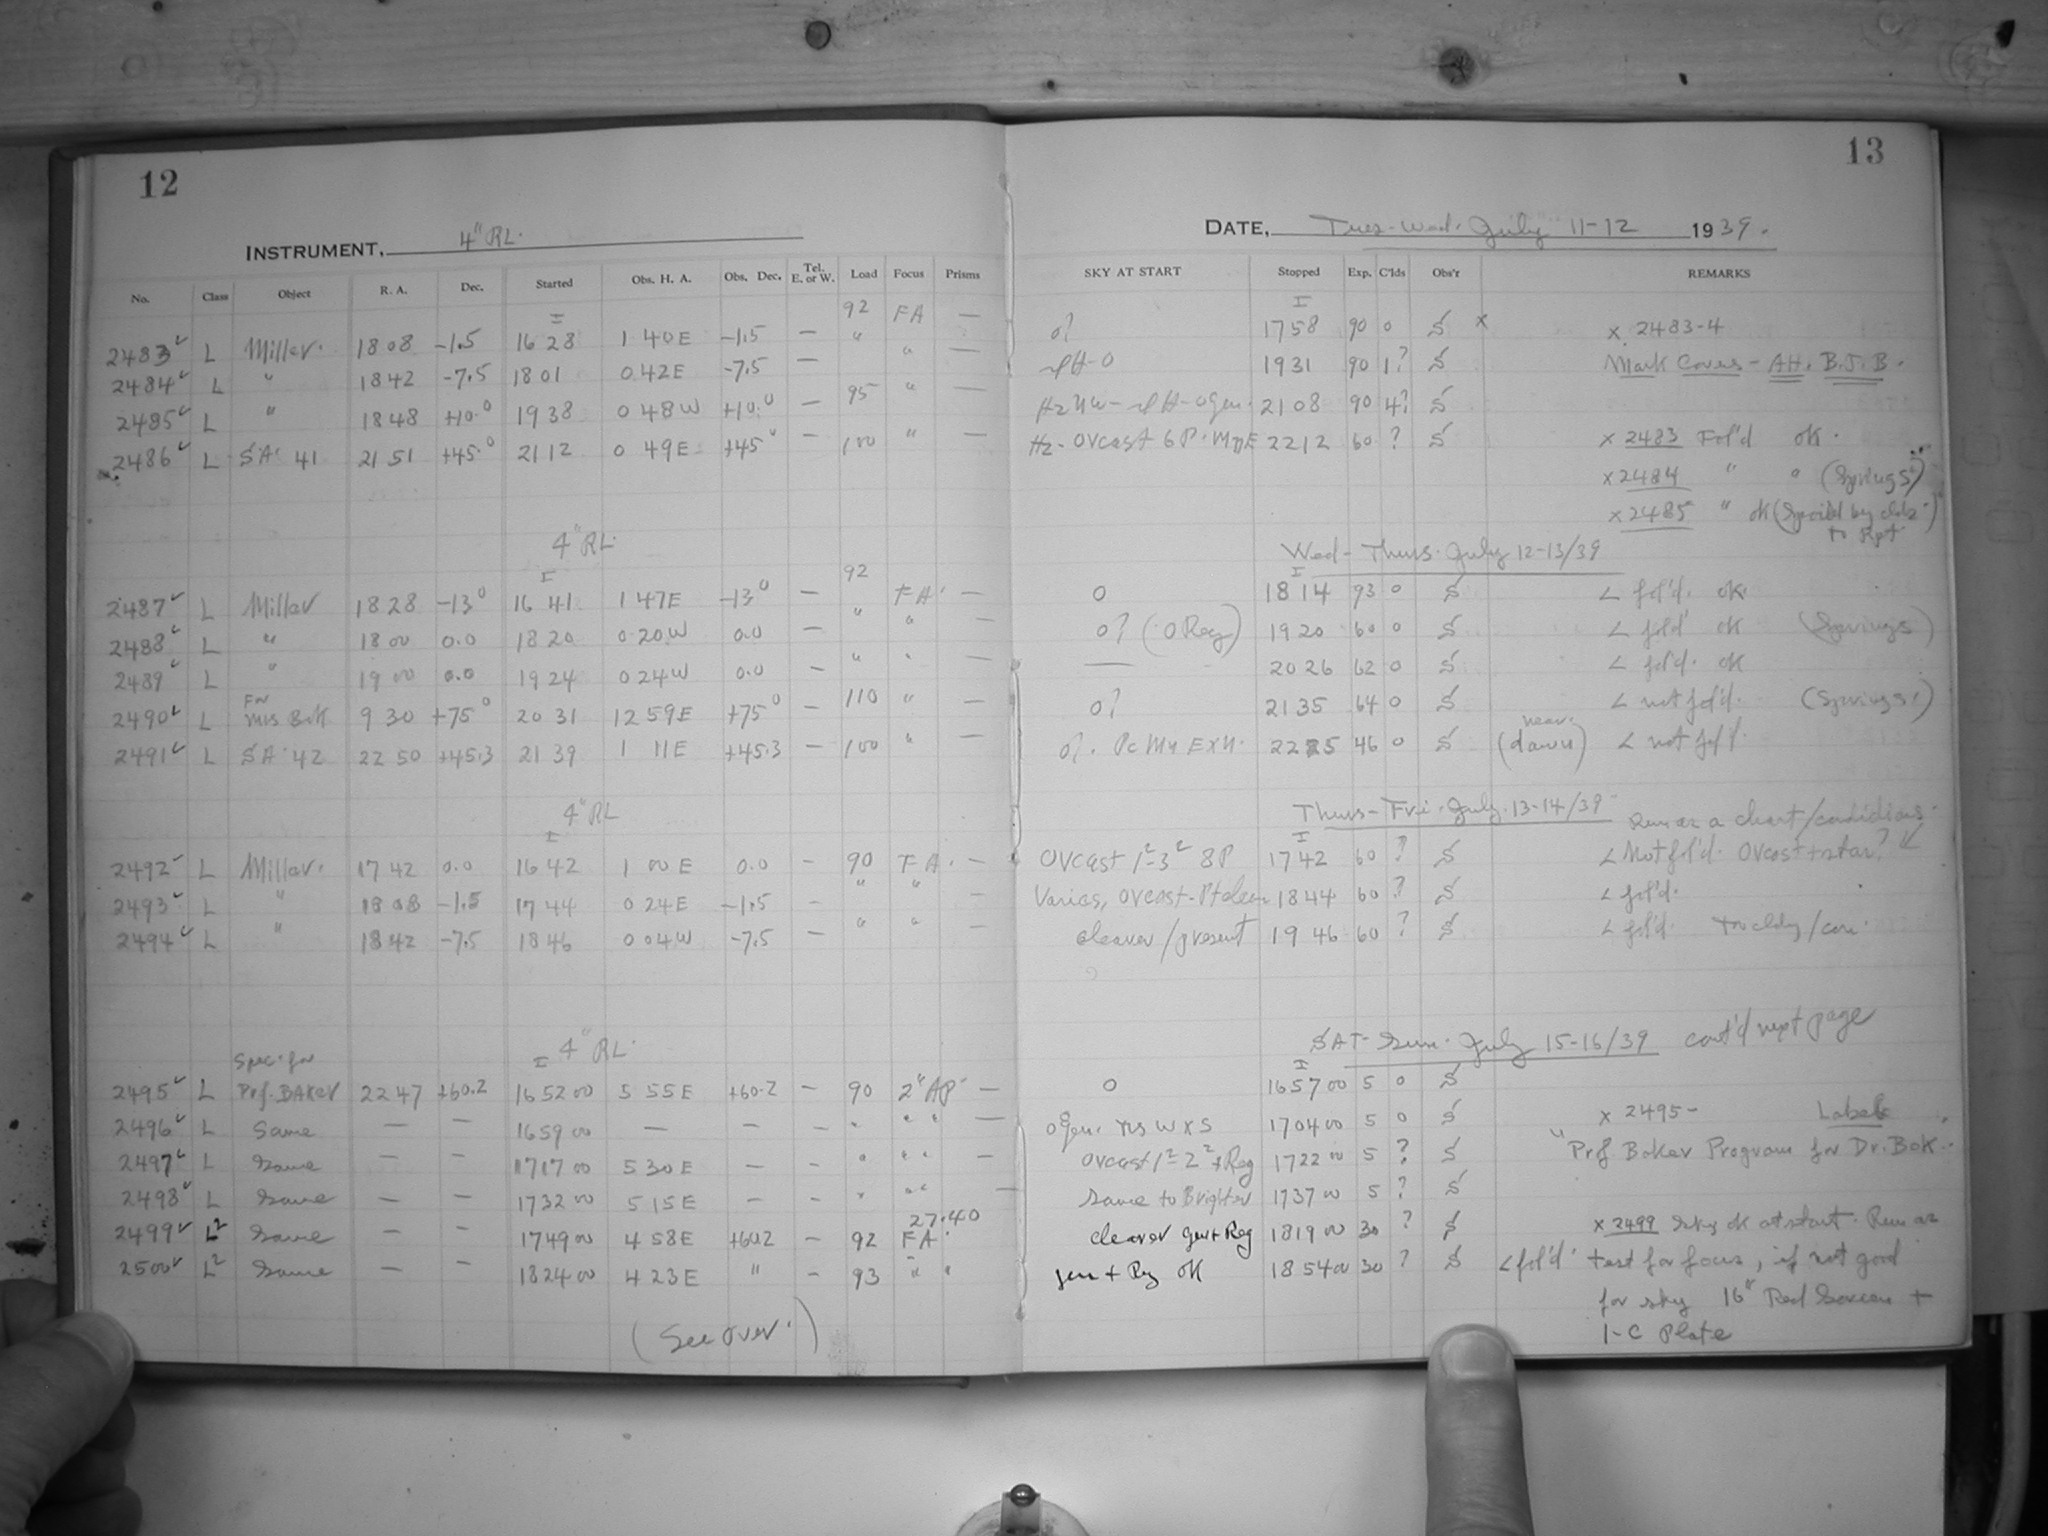 12
INSTRUMENT, 4" RL.
No. Class Object R. A. Dec. Started Obs. H. A. Obs. Dec. Tel. E. or W. Load Focus Prisms
I
2483 L Miller. 1808 -1.5 1628 1 40E -1.5 — 92 FA —
2484 L " 1842 -7.5 1801 0 42E -7.5 — " " —
2485 L " 1848 +10.0 1938 0 48W +10.0 — 95 " —
2486 L SA 41 2151 +45.0 2112 0 49E +45° — 100 " —
4" RL.
I
2487 L Miller 1828 -13° 1641 1 47E -13° — 92 FA. —
2488 L " 1800 0.0 1820 0 20W 0.0 — " " —
2489 L " 1900 0.0 1924 0 24W 0.0 — " " —
2490 L For Mrs Bok 9 30 +75° 20 31 12 59E +75° — 110 " —
2491 L SA 42 22 50 +45.3 21 39 1 11E +45.3 — 100 " —
4" RL
I
2492 L Miller. 1742 0.0 1642 1 00 E 0.0 - 90 FA. —
2493 L " 1808 -1.5 1744 0 24E -1.5 - " " —
2494 L " 1842 -7.5 1846 0 04W -7.5 — " " —
4" RL.
I
Spec. for
2495 L Prof. BAKer 2247 +60.2 165200 5 55E +60.2 — 90 2" AP —
2496 L Same — — 165900 — — — " " " —
2497 L Same — — 171700 5 30E — — " " " —
2498 L Same — — 173200 5 15E — — " " " —
27.40
2499 L² Same — — 174900 4 58E +60.2 — 92 FA.
2500 L² Same — — 182400 4 23E " — 93 " "
(See over.)
13
DATE, Tues-Wed. July 11-12 1939.
SKY AT START Stopped Exp. C'lds Obs'r REMARKS
I
0? 1758 90 0 S x x 2483-4
1931 90 1? S Mark Covers - AH. B.J.B.
2108 90 4? S
Hz - Ovcast 6P. 2212 60 ? S x 2483 Fol'd ok.
x 2484 " " (Springs)
x 2485 " ok (Spoiled by clds to Rpt)
Wed - Thurs. July 12-13/39
I
0 1814 93 0 S < fol'd. ok.
0? (0 Reg) 1920 60 0 S < fol'd ok (Springs)
— 2026 62 0 S < fol'd. ok
0? 2135 64 0 S < not fol'd. (Springs)
2225 46 0 S (near dawn) < not fol'd.
Thurs - Fri. July. 13-14/39
I Run as a chart/conditions.
Ovcast 1²-3² 8P 1742 60 ? S < Not fol'd. Ovcast + star?
Varies, Ovcast - Pt clear 1844 60 ? S < fol'd.
clearer / present 1946 60 ? S < fol'd.
SAT - Sun. July 15-16/39 cont'd next page
I
0 165700 5 0 S
170400 5 0 S x 2495- Labels
ovcast 1²-2² + Reg 172200 5 ? S "Prof. Baker Program for Dr. Bok.
same to Brighter 173700 5 ? S
clearer gen + Reg 181900 30 ? S x 2499 Sky ok at start. Run as
gen + Reg OK 185400 30 ? S < fol'd. test for focus, if not good
for sky 16" Red Screen +
1-C Plate